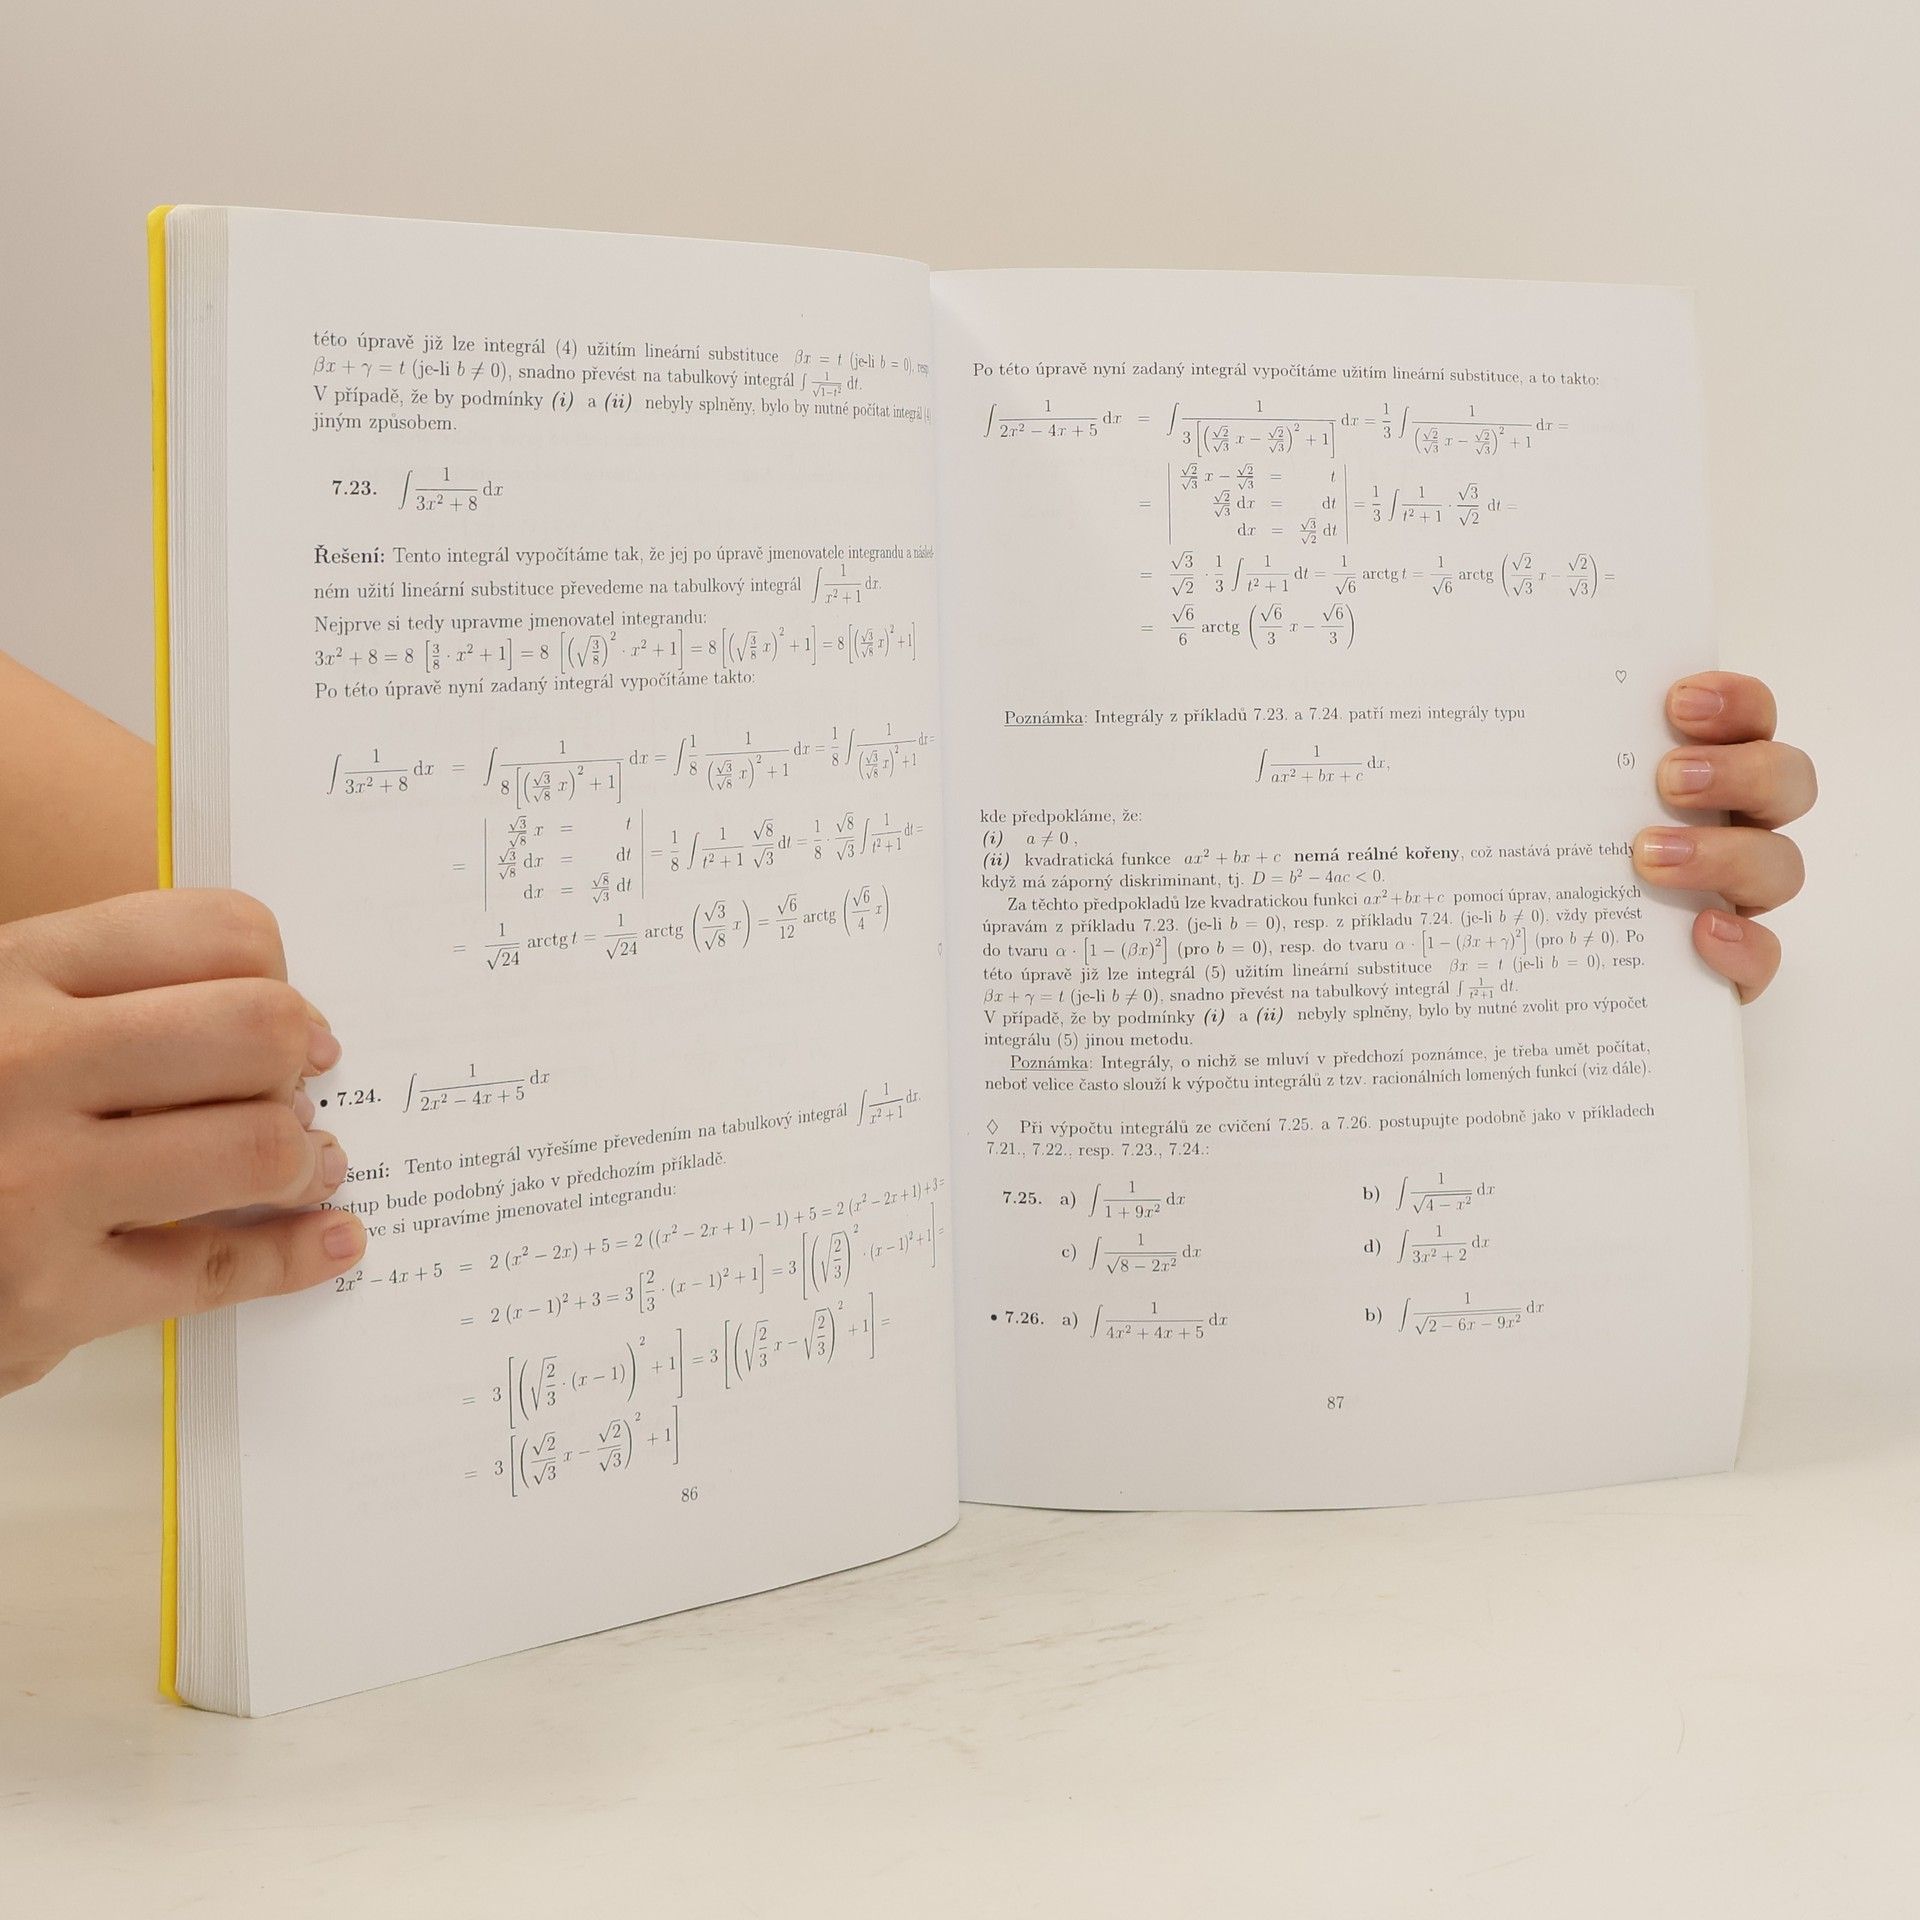 této úpravě již lze integrál (4) užitím lineární substituce βx = t (je-li b = 0), resp
βx + γ = t (je-li b ≠ 0), snadno převést na tabulkový integrál ∫ 1/√(1−t²) dt.
V případě, že by podmínky (i) a (ii) nebyly splněny, bylo by nutné počítat integrál (4)
jiným způsobem.
7.23. ∫ 1/(3x² + 8) dx
Řešení: Tento integrál vypočítáme tak, že jej po úpravě jmenovatele integrandu a násled-
ném užití lineární substituce převedeme na tabulkový integrál ∫ 1/(x² + 1) dx.
Nejprve si tedy upravme jmenovatel integrandu:
3x² + 8 = 8 [3/8 · x² + 1] = 8 [(√(3/8))² · x² + 1] = 8 [(√(3/8) x)² + 1] = 8 [(√3/√8 x)² + 1]
Po této úpravě nyní zadaný integrál vypočítáme takto:
∫ 1/(3x² + 8) dx = ∫ 1/(8 [(√3/√8 x)² + 1]) dx = ∫ 1/8 1/((√3/√8 x)² + 1) dx = 1/8 ∫ 1/((√3/√8 x)² + 1) dx =
= | √3/√8 x = t
√3/√8 dx = dt
dx = √8/√3 dt | = 1/8 ∫ 1/(t² + 1) √8/√3 dt = 1/8 · √8/√3 ∫ 1/(t² + 1) dt =
= 1/√24 arctg t = 1/√24 arctg (√3/√8 x) = √6/12 arctg (√6/4 x)
♡
• 7.24. ∫ 1/(2x² − 4x + 5) dx
šení: Tento integrál vyřešíme převedením na tabulkový integrál ∫ 1/(x² + 1) dx.
Postup bude podobný jako v předchozím příkladě.
ve si upravíme jmenovatel integrandu:
2x² − 4x + 5 = 2 (x² − 2x) + 5 = 2 ((x² − 2x + 1) − 1) + 5 = 2 (x² − 2x + 1) + 3 =
= 2 (x − 1)² + 3 = 3 [2/3 · (x − 1)² + 1] = 3 [(√(2/3))² · (x − 1)² + 1] =
= 3 [(√(2/3) · (x − 1))² + 1] = 3 [(√(2/3) x − √(2/3))² + 1] =
= 3 [(√2/√3 x − √2/√3)² + 1]
86
Po této úpravě nyní zadaný integrál vypočítáme užitím lineární substituce, a to takto:
∫ 1/(2x² − 4x + 5) dx = ∫ 1/(3 [(√2/√3 x − √2/√3)² + 1]) dx = 1/3 ∫ 1/((√2/√3 x − √2/√3)² + 1) dx =
= | √2/√3 x − √2/√3 = t
√2/√3 dx = dt
dx = √3/√2 dt | = 1/3 ∫ 1/(t² + 1) · √3/√2 dt =
= √3/√2 · 1/3 ∫ 1/(t² + 1) dt = 1/√6 arctg t = 1/√6 arctg (√2/√3 x − √2/√3) =
= √6/6 arctg (√6/3 x − √6/3)
♡
Poznámka: Integrály z příkladů 7.23. a 7.24. patří mezi integrály typu
∫ 1/(ax² + bx + c) dx, (5)
kde předpokláme, že:
(i) a ≠ 0 ,
(ii) kvadratická funkce ax² + bx + c nemá reálné kořeny, což nastává právě tehdy
když má záporný diskriminant, tj. D = b² − 4ac < 0.
Za těchto předpokladů lze kvadratickou funkci ax² + bx + c pomocí úprav, analogických
úpravám z příkladu 7.23. (je-li b = 0), resp. z příkladu 7.24. (je-li b ≠ 0), vždy převést
do tvaru α · [1 − (βx)²] (pro b = 0), resp. do tvaru α · [1 − (βx + γ)²] (pro b ≠ 0). Po
této úpravě již lze integrál (5) užitím lineární substituce βx = t (je-li b = 0), resp.
βx + γ = t (je-li b ≠ 0), snadno převést na tabulkový integrál ∫ 1/(t²+1) dt.
V případě, že by podmínky (i) a (ii) nebyly splněny, bylo by nutné zvolit pro výpočet
integrálu (5) jinou metodu.
Poznámka: Integrály, o nichž se mluví v předchozí poznámce, je třeba umět počítat,
neboť velice často slouží k výpočtu integrálů z tzv. racionálních lomených funkcí (viz dále).
♢ Při výpočtu integrálů ze cvičení 7.25. a 7.26. postupujte podobně jako v příkladech
7.21., 7.22., resp. 7.23., 7.24.:
7.25. a) ∫ 1/(1 + 9x²) dx b) ∫ 1/√(4 − x²) dx
c) ∫ 1/√(8 − 2x²) dx d) ∫ 1/(3x² + 2) dx
• 7.26. a) ∫ 1/(4x² + 4x + 5) dx b) ∫ 1/√(2 − 6x − 9x²) dx
87